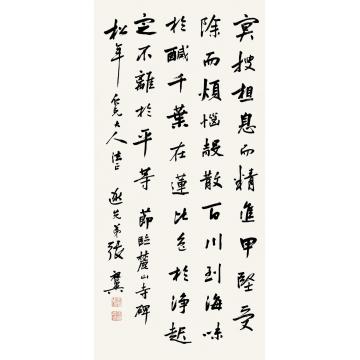 冥搜想息而精進甲堅受
除而煩惱殼散百川到海味
於鹹千葉在蓮比色於淨起
定不離於平等 節臨麓山寺碑
松年仁兄大人法正 遜先弟張